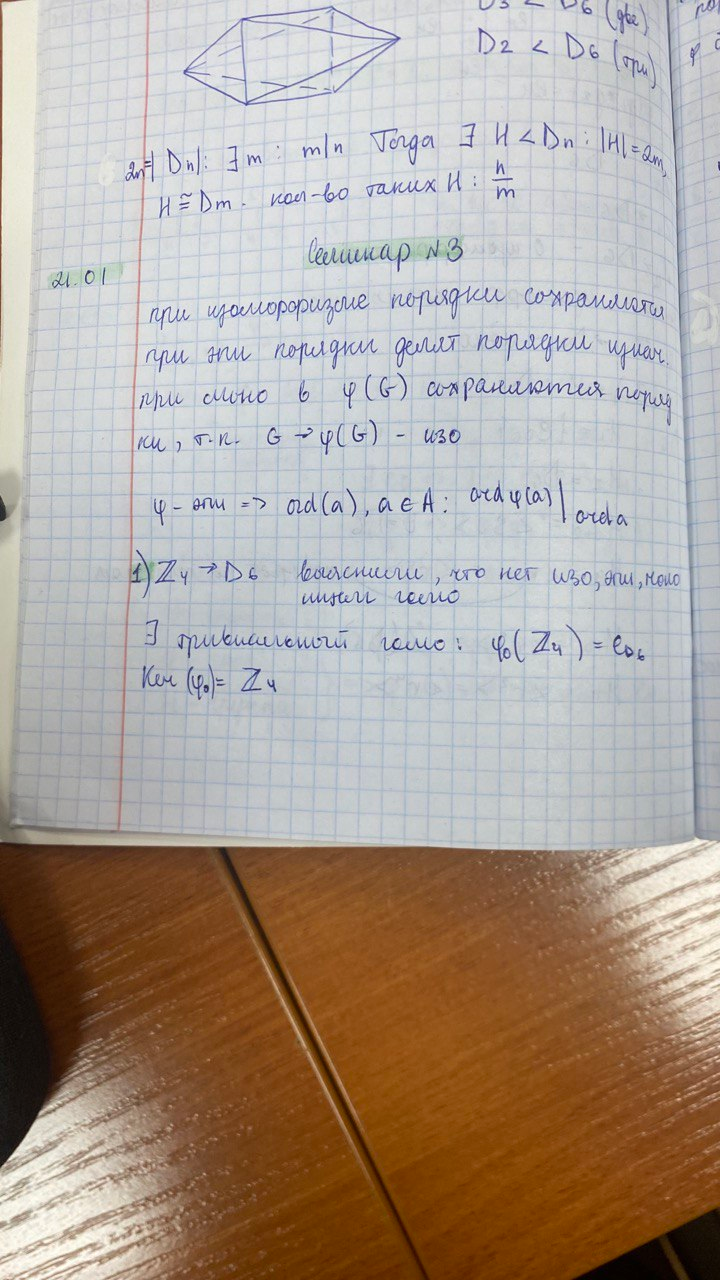 D3 < D6 (две)
D2 < D6 (три)
2n=|Dn|: ∃ m : m|n Тогда ∃ H < Dn : |H|=2m,
H ≅ Dm. кол-во таких H : n/m
Семинар №3
21.01
при изоморфизме порядки сохраняются
при эпи порядки делят порядки изнач.
при моно в φ(G) сохраняются поряд
ки, т.к. G → φ(G) - изо
φ - эпи => ord(a), a ∈ A : ord φ(a) | ord a
1) Z4 → D6 выяснили, что нет изо, эпи, моно
ищем гомо
∃ тривиальный гомо: φ0(Z4) = eD6
Ker (φ0) = Z4